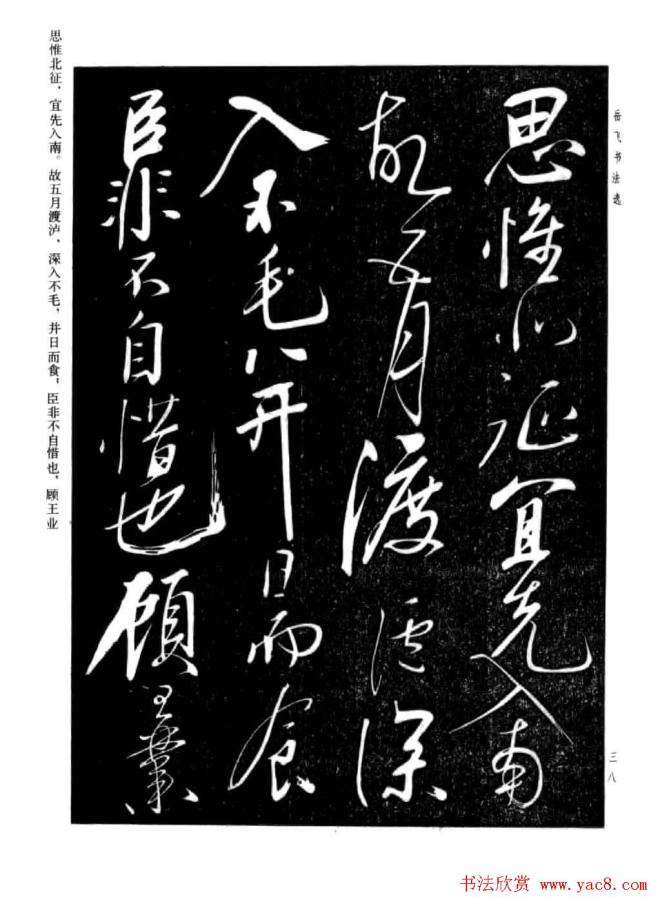 岳飞书法选
思惟北征宜先入南
故五月渡泸深
入不毛并日而食
臣非不自惜也顾王业
思惟北征，宜先入南。故五月渡泸，深入不毛，并日而食，臣非不自惜也，顾王业
三八
书法欣赏 www.yac8.com